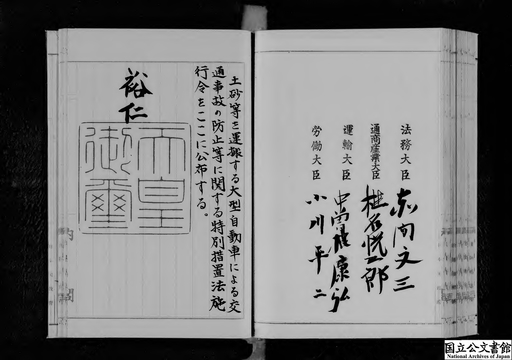 法務大臣 赤間文三
通商産業大臣 椎名悦三郎
運輸大臣 中曽根康弘
労働大臣 小川平二
土砂等を運搬する大型自動車による交
通事故の防止等に関する特別措置法施
行令をここに公布する。
裕仁
天皇
御璽
国立公文書館
National Archives of Japan